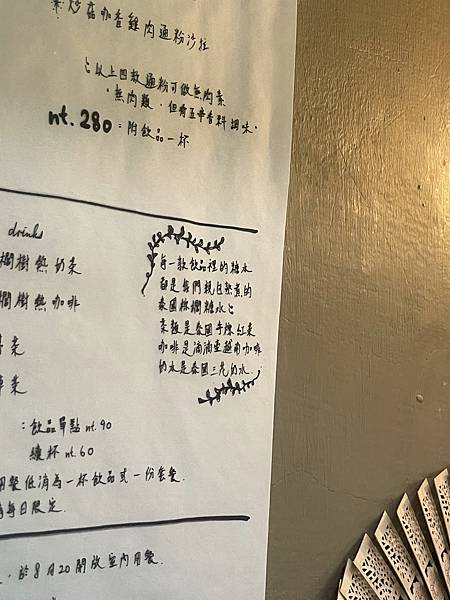 炒菇咖香雞肉通粉沙拉
以上四款通粉可做無肉素
無肉類，但有五辛香料調味。
nt. 280：附飲品一杯
drinks
櫚樹熱奶茶
櫚樹熱咖啡
茶
茶
每一款飲品裡的糖水
都是我們親自熬煮的
泰國棕櫚糖水
茶類是泰國手標紅茶
咖啡是滴滴壺越南咖啡
奶水是泰國三花奶水.
：飲品單點 nt. 90
續杯 nt. 60
用餐低消為一杯飲品或一份套餐.
為每日限定.
，於8月20開放室內用餐.